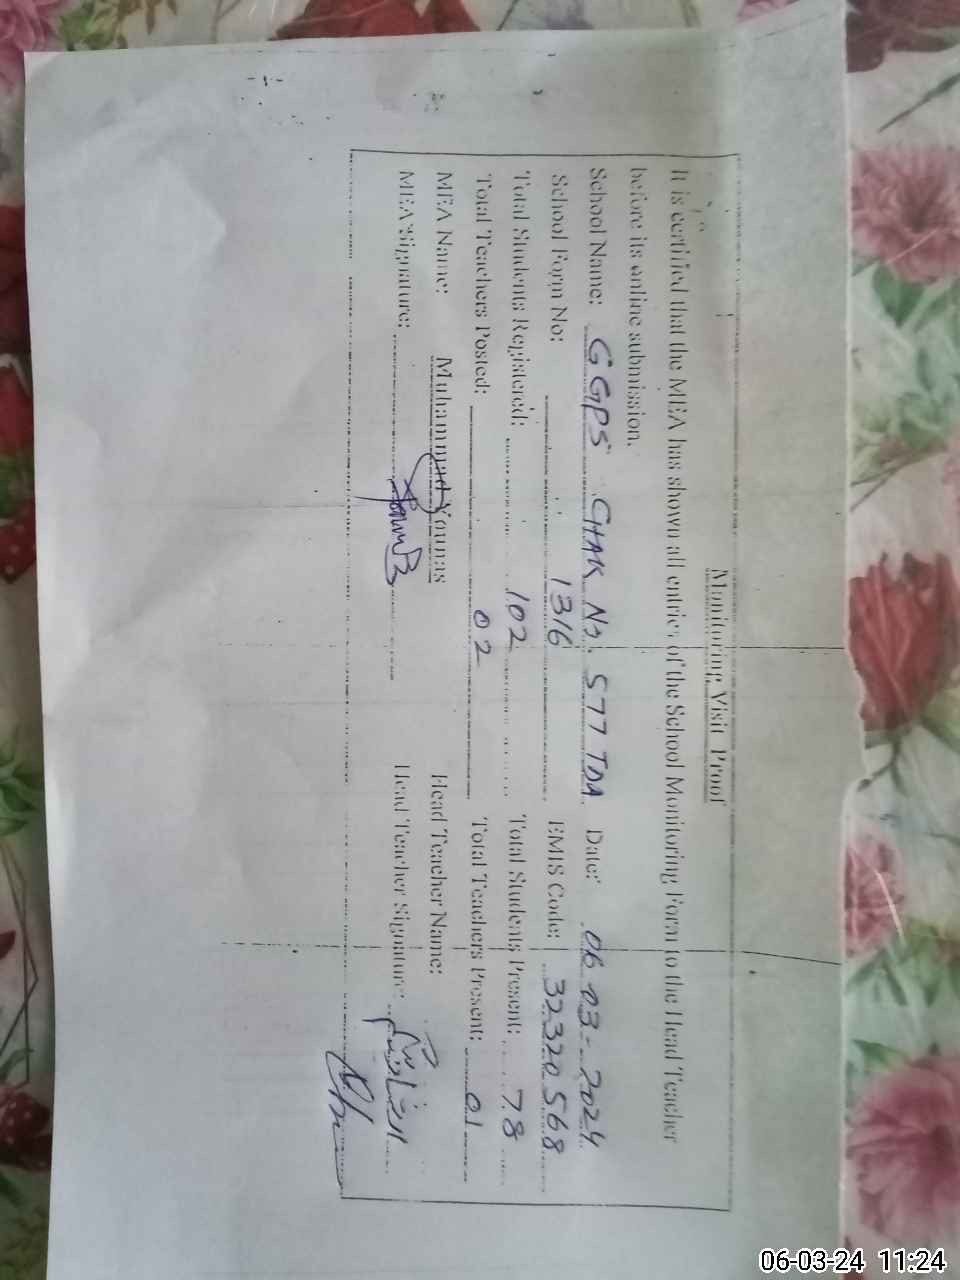 Monitoring Visit Proof
It is certified that the MEA has shown all entries of the School Monitoring Form to the Head Teacher
before its online submission.
School Name: GGPS CHAK No. 577 TDA Date: 06-03-2024
School Form No: 1316 EMIS Code: 32320568
Total Students Registered: 102 Total Students Present: 78
Total Teachers Posted: 02 Total Teachers Present: 01
MEA Name: Muhammad Younas Head Teacher Name:
MEA Signature: Head Teacher Signature:
06-03-24 11:24